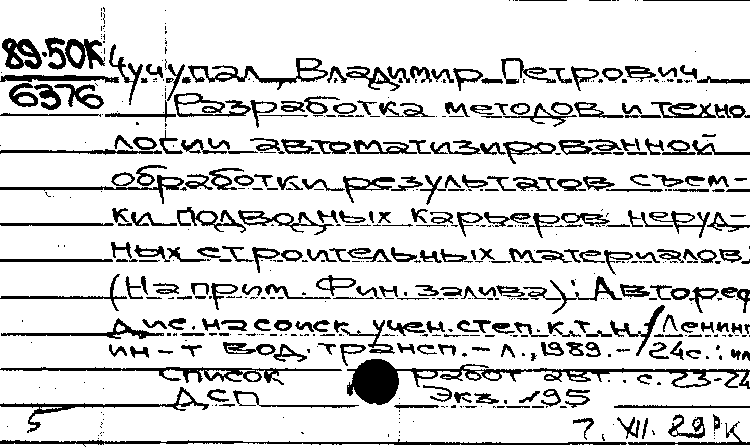 89-50К
6376
Чучупал, Владимир Петрович.
Разработка методов и техно
логии автоматизированной
обработки результатов съем-
ки подводных карьеров неруд-
ных строительных материалов:
(На прим. Фин. залива): Автореф
дис. на соиск. учен. степ. к.т.н. / Ленинг
ин-т вод. трансп. - Л., 1989. - 24 с.: ил
Список работ авт.: с. 23-24
ДСП Экз. №95
5 7. XII. 89 РК